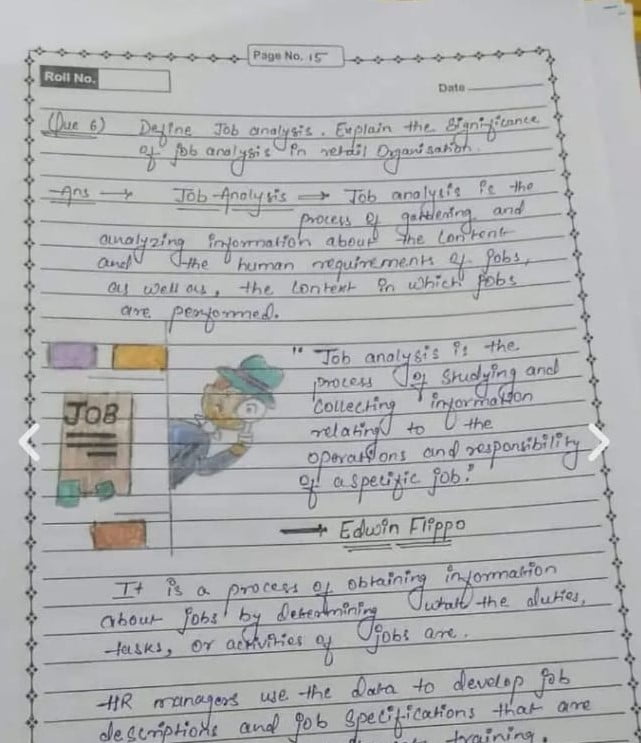 Page No. 15
Roll No.
Date
(Que 6) Define Job analysis. Explain the Significance
of job analysis in retail Organisation.
Ans → Job Analysis ⇒ Job analysis is the
process of gathering and
analyzing information about the content
and the human requirements of jobs,
as well as, the context in which jobs
are performed.
" Job analysis is the
process of studying and
Collecting information
relating to the
operations and responsibility
of a specific job."
JOB
→ Edwin Flippo
It is a process of obtaining information
about jobs by determining what the duties,
tasks, or activities of jobs are.
HR managers use the data to develop job
descriptions and job specifications that are
training.